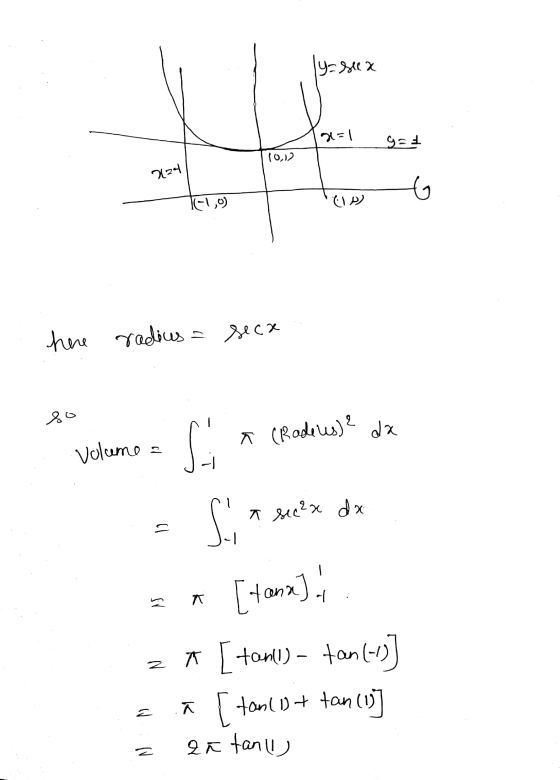 y = sec x
x = 1 y = 1
(0,1)
x = -1
(-1,0) (1,0)
here radius = sec x
so
Volume = ∫_{-1}^{1} π (Radius)² dx
= ∫_{-1}^{1} π sec²x dx
= π [tanx]_{-1}^{1}.
= π [tan(1) - tan(-1)]
= π [tan(1) + tan(1)]
= 2π tan(1)